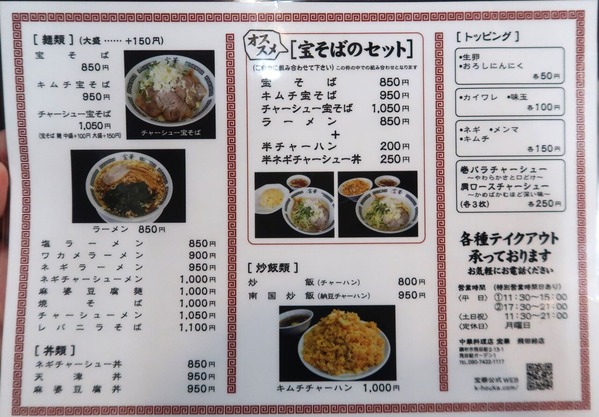 [ 麺類 ] (大盛 …… +150円)
宝そば
850円
キムチ宝そば
950円
チャーシュー宝そば
1,050円
(宝そば 麺 中盛+100円 大盛+150円)
チャーシュー宝そば
ラーメン 850円
塩ラーメン 850円
ワカメラーメン 900円
ネギラーメン 950円
ネギチャーシューメン 1,000円
麻婆豆腐麺 1,000円
焼そば 1,000円
チャーシューメン 1,050円
レバニラそば 1,100円
[ 丼類 ]
ネギチャーシュー丼 950円
天津丼 950円
麻婆豆腐丼 950円
オススメ
[宝そばのセット]
宝そば 850円
キムチ宝そば 950円
チャーシュー宝そば 1,050円
ラーメン 850円
+
半チャーハン 200円
半ネギチャーシュー丼 250円
[ 炒飯類 ]
炒飯(チャーハン) 800円
南国炒飯(納豆チャーハン) 950円
キムチチャーハン 1,000円
[ トッピング ]
•生卵
•おろしにんにく
各50円
•カイワレ •味玉
各100円
•ネギ •メンマ
•キムチ
各150円
巻バラチャーシュー
〜やわらかさと口どけ〜
肩ロースチャーシュー
〜かめばかむほど深い味〜
(各3枚) 各250円
各種テイクアウト
承っております
お気軽にお電話ください
営業時間 (特別営業時間日あり)
(平日) ①11:30~15:00
②17:30~21:00
(土日祝) 11:30~21:00
(定休日) 月曜日
中華料理店 宝華
宝華公式WEB
k-houka.com/